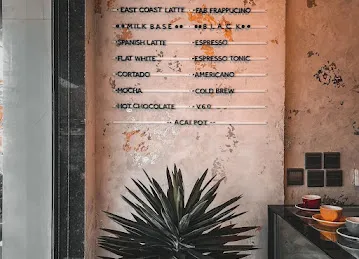 ·EAST COAST LATTE ·FAB FRAPPUCINO
●●MILK BASE●● ●●B.L.A.C.K●●
·SPANISH LATTE ·ESPRESSO
·FLAT WHITE ·ESPRESSO TONIC
·CORTADO ·AMERICANO
·MOCHA ·COLD BREW
·HOT CHOCOLATE ·V60
-- ACAI POT --